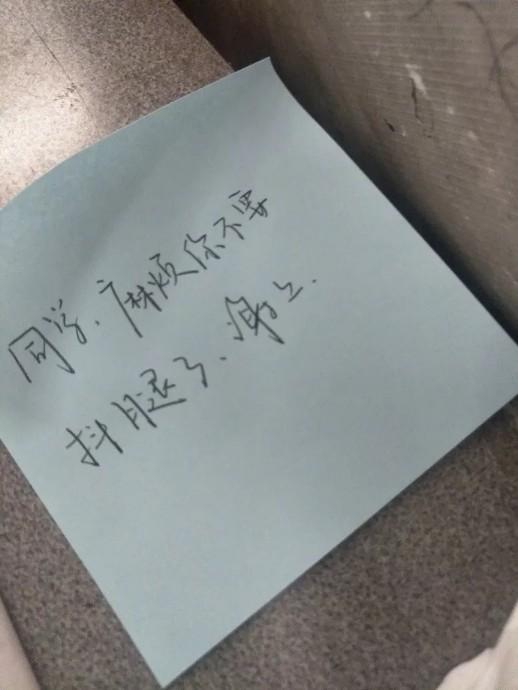 同学、麻烦你不要
抖腿了、谢谢.